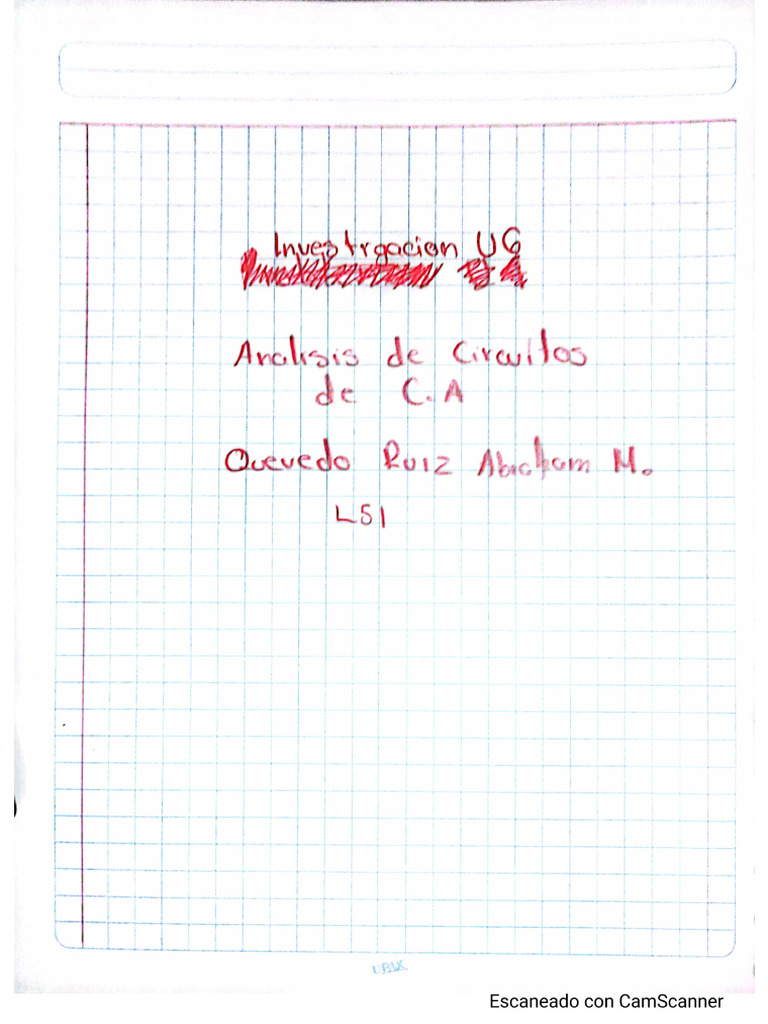 Investigacion U6
Analisis de Circuitos
de C.A
Quevedo Ruiz Abraham M.
L51
Escaneado con CamScanner